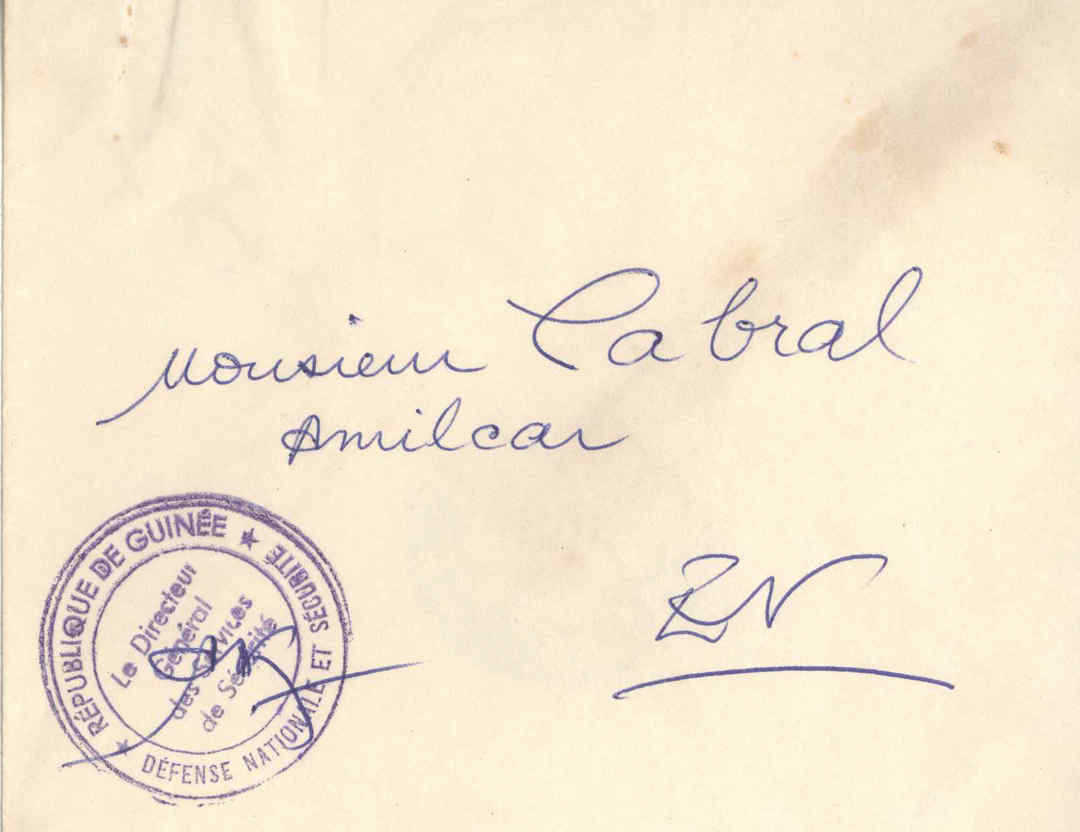 Monsieur Cabral
Amilcar
EV
★ RÉPUBLIQUE DE GUINÉE ★
DÉFENSE NATIONALE ET SÉCURITÉ
Le Directeur
Général
des Services
de Sécurité